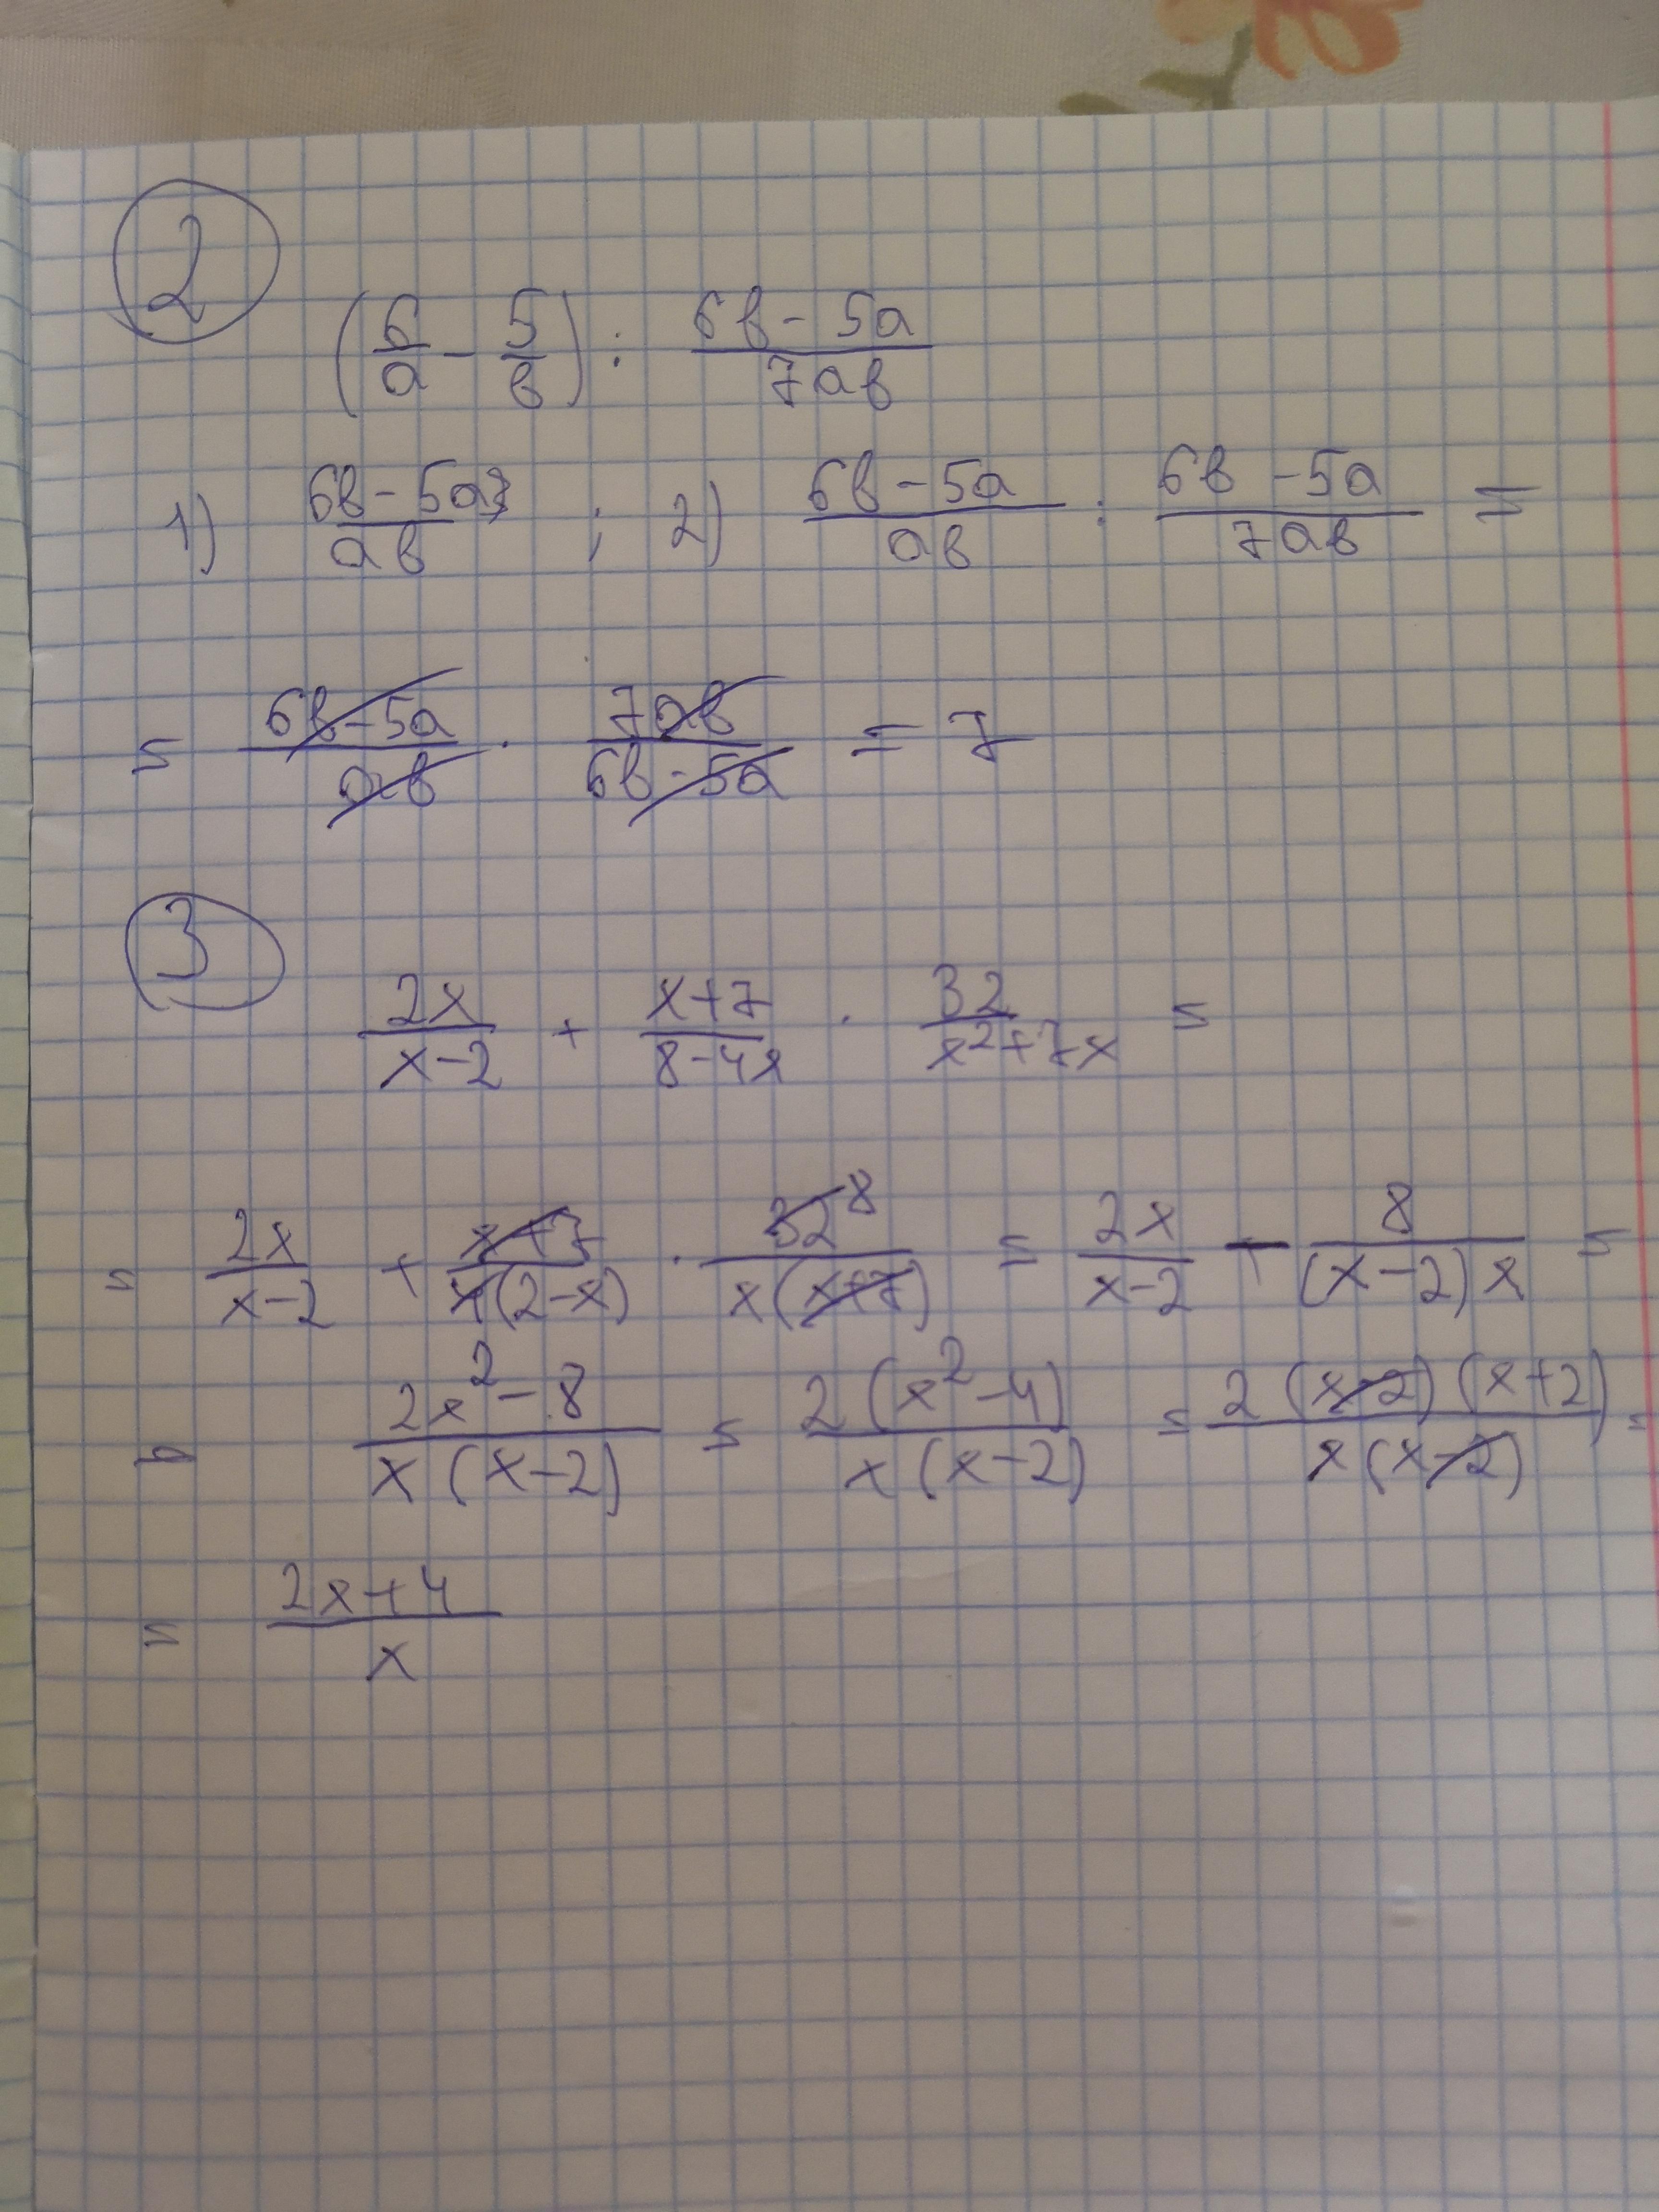 2
(6/a - 5/b) : (6b - 5a)/(7ab)
1) (6b - 5a)/(ab) ; 2) (6b - 5a)/(ab) : (6b - 5a)/(7ab) =
= (6b - 5a)/(ab) · (7ab)/(6b - 5a) = 7
3
2x/(x-2) + (x+7)/(8-4x) · 32/(x²+7x) =
= 2x/(x-2) + (x+7)/(4(2-x)) · 32 8/(x(x+7)) = 2x/(x-2) - 8/((x-2)x) =
= (2x²-8)/(x(x-2)) = 2(x²-4)/(x(x-2)) = 2(x-2)(x+2)/(x(x-2)) =
= (2x+4)/x